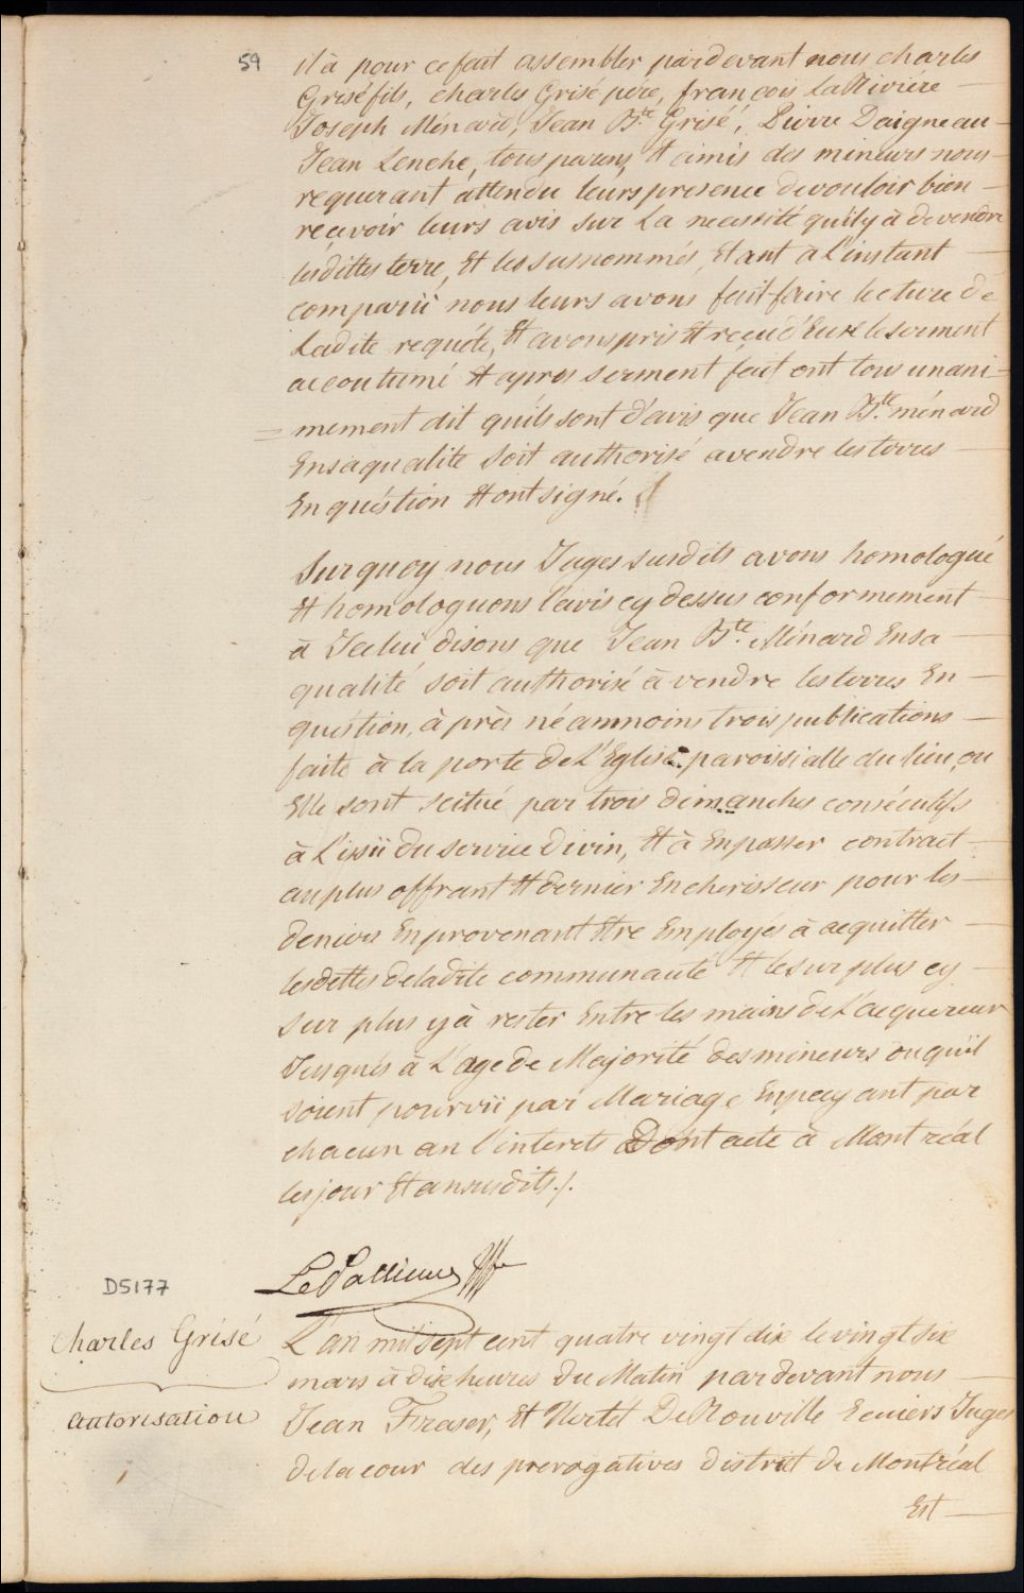 59
il à pour ce fait assembler pardevant nous charles
Grisé fils, charles Grisé pere, françois LaRiviére
Joseph Ménard, Jean Bte. Grisé, Pierre Daigneau
Jean Lenche, tous parens, Et amis des mineurs nous
requerant attendu leurs presence devouloir bien
récevoir leurs avis sur La necessité quil y à de vendre
lesdittes terre, Et les susnommés, Etant a L'instant
comparüs nous leurs avons fait faire lecture de
Ladite requéte, Et avons pris Et recu d'Eux le serment
accoutumé Et apres serment fait ont tous unani-
= mement dit quils sont d'avis que Jean Bte. ménard
Ensaqualité soit authorisé avendre les terres
En quéstion Et ont signé.
Surquoy nous Juges susdits avons homologué
Et homologuons l'avis cy dessus conformement
à Icelui disons que Jean Bte. Ménard Ensa
qualité soit authorisé à vendre les terres En
quéstion, à près néammoins trois publications
faite à la porte de L'Eglise paroissialle du lieu, ou
Elle sont scitué par trois dimanches consécutifs
à L'issü du service divin, Et à Enpasser contract
auplus offrant Et dernier Encherisseur pour les
deniers Enprovenant Etre Employés à acquitter
lesdettes deladite communauté Et lesurplus cy
sur plus y à rester Entre les mains de L'acquereur
Jusqués à L'age de Majorité desmineurs ou quil
soient pourvü par Mariage Enpayant par
chacun an l'interets Dont acte à Montréal
les jour Et ansusdits ./.
LePallieur
D5177
Charles Grisé
autorisation
L'an mil sept cent quatre vingt dix le vingt six
mars à dix heures du Matin pardevant nous
Jean Fraser, Et Hertel DeRouville Ecuiers Juges
dela cour des prerogatives district de Montréal
Est